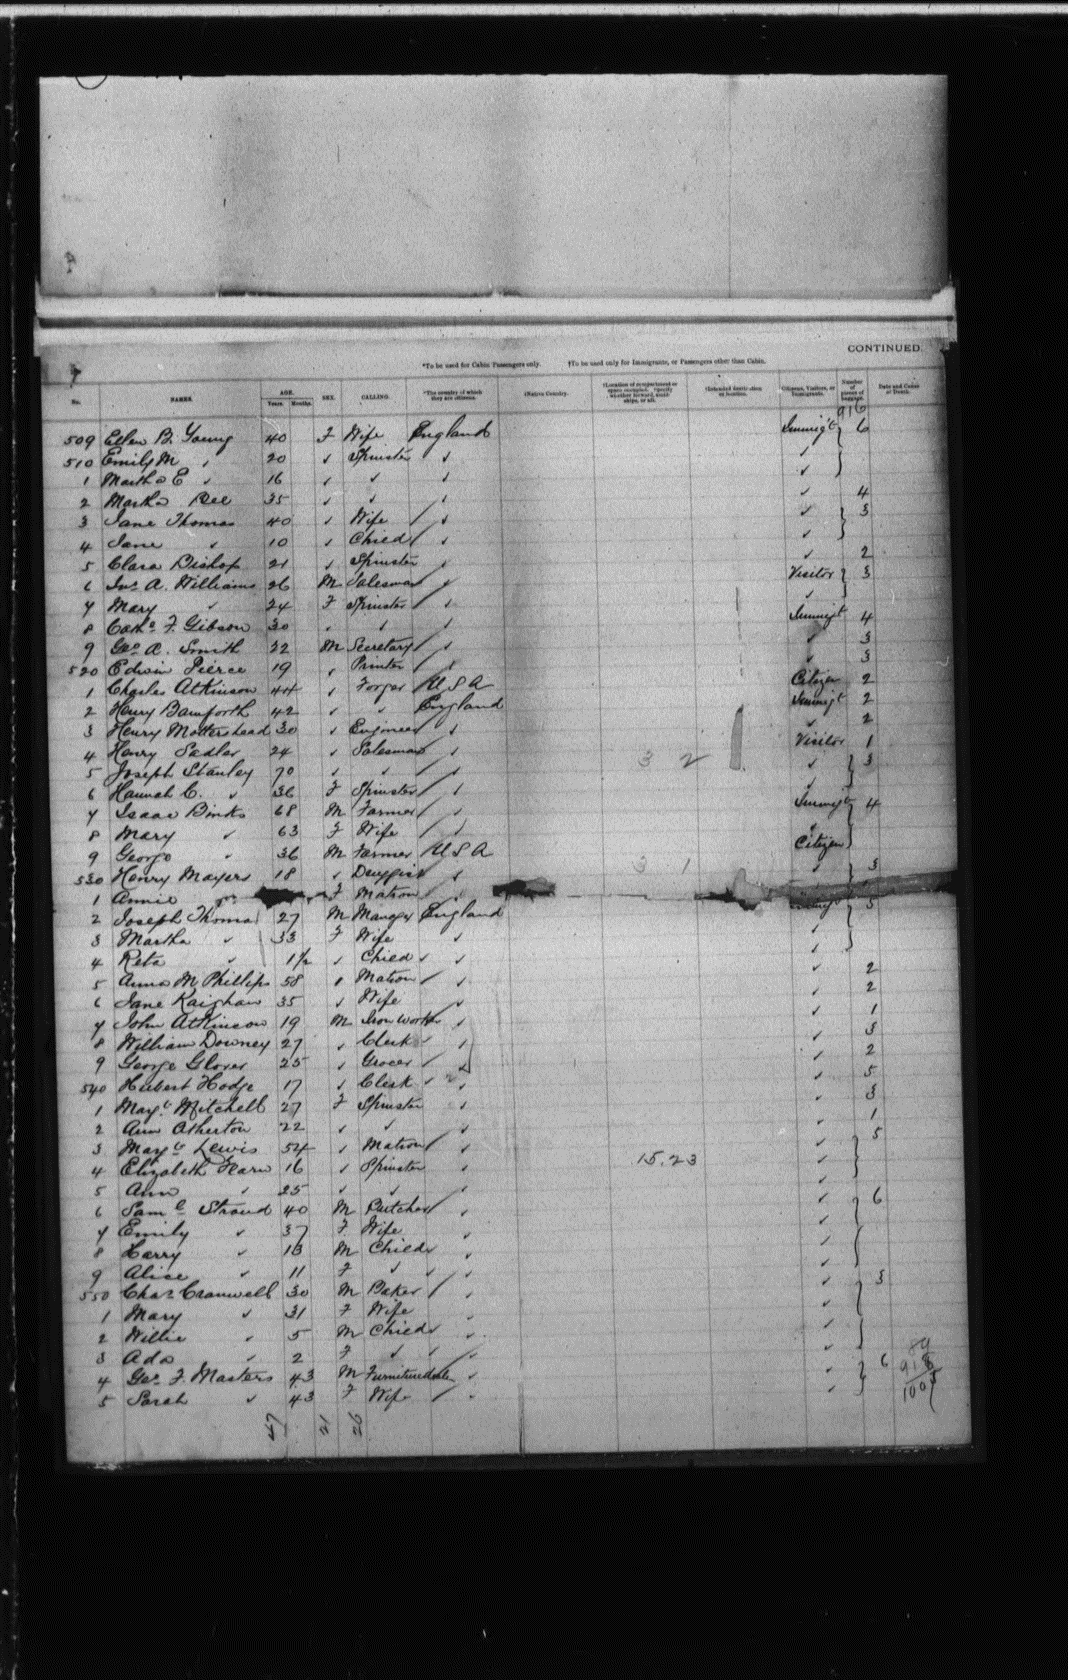 CONTINUED.
*To be used for Cabin Passengers only. †To be used only for Immigrants, or Passengers other than Cabin.
No. NAMES. AGE. Years. Months. SEX. CALLING. *The country of which they are citizens. †Native Country. †Intended destination or location. Citizens, Visitors, or Immigrants. Number of pieces of baggage. Date and Cause of Death.
916
509 Ellen B. Young 40 F Wife England Immig't 6
510 Emily M " 20 " Spinster " "
1 Martha E " 16 " " " "
2 Martha Bee 35 " " " " 4
3 Jane Thomas 40 " Wife " " 3
4 Jane " 10 " Child " "
5 Clara Bishop 21 " Spinster " " 2
6 Jno A. Williams 26 M Salesman " Visitor 3
7 Mary " 24 F Spinster " "
8 Cathe F. Gibson 30 " " " Immigt 4
9 Geo A. Smith 22 M Secretary " " 3
520 Edwin Pierce 19 " Printer " " 3
1 Charles Atkinson 44 " Forger U S A Citizen 2
2 Henry Bamforth 42 " " England Immigt 2
3 Henry Mottershead 30 " Engineer " " 2
4 Henry Sadler 24 " Salesman " Visitor 1
5 Joseph Stanley 70 " " " 3 2 " 3
6 Hannah C. " 36 F Spinster " "
7 Isaac Binks 68 M Farmer " Immigt 4
8 Mary " 63 F Wife " "
9 George " 36 M Farmer U S A Citizen
530 Henry Mayers 18 " Druggist " 3 1 " 3
1 Annie F Matron "
2 Joseph Thomas 27 M Manger England 5
3 Martha " 33 F Wife " "
4 Reta " 1½ " Child " "
5 Anna M Phillips 58 " Matron " " 2
6 Jane Kaighan 35 " Wife " " 2
7 John Atkinson 19 M Iron Worker " " 1
8 William Downey 27 " Clerk " " 3
9 George Glover 25 " Grocer " " 2
540 Hubert Hodge 17 " Clerk " " 5
1 Mayt Mitchell 27 F Spinster " " 3
2 Ann Atherton 22 " " " " 1
3 Mayt Lewis 54 " Matron " " 5
4 Elizabeth Hearn 16 " Spinster " 15.23 "
5 Ann " 25 " " " "
6 Saml Stroud 40 M Butcher " " 6
7 Emily " 37 F Wife " "
8 Harry " 13 M Child " "
9 Alice " 11 F " " "
550 Chas Cranwell 30 M Baker " " 3
1 Mary " 31 F Wife " "
2 Willie " 5 M Child " "
3 Ada " 2 F " "
4 Geo F. Masters 43 M Furnituredealer " " 6
5 Sarah " 43 F Wife " "
47 21 26
89
916
1005